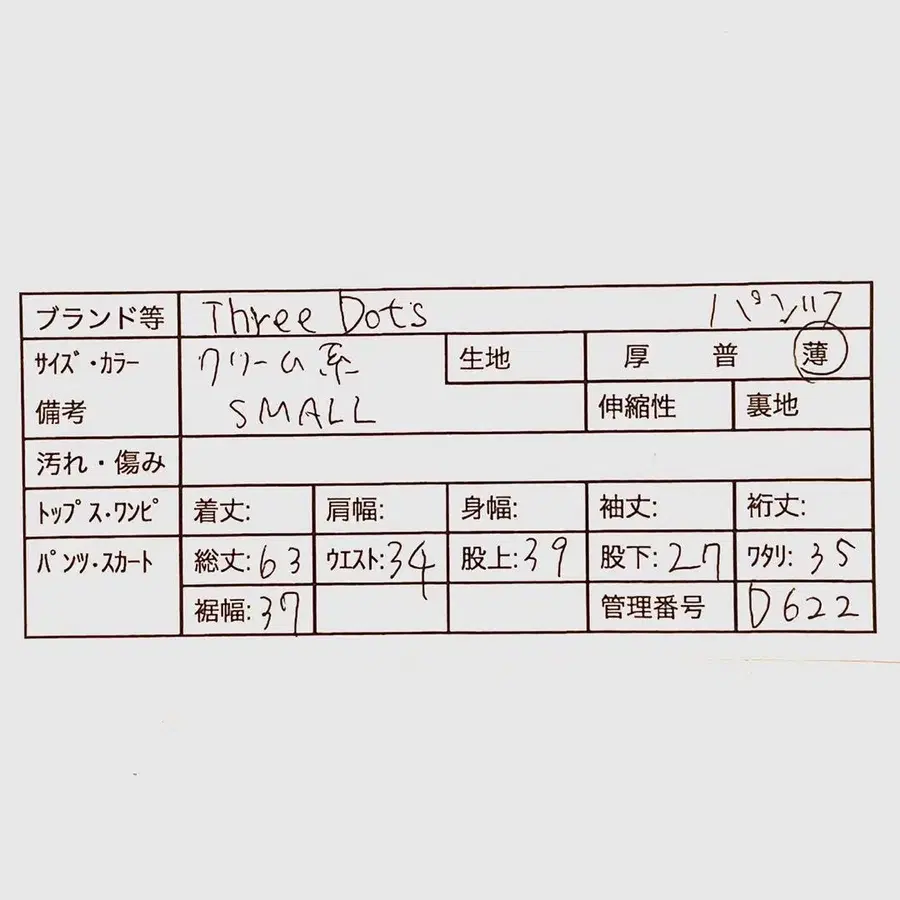 ブランド等 Three Dots パンツ
サイズ・カラー クリーム系 生地 厚 普 薄
備考 SMALL 伸縮性 裏地
汚れ・傷み
トップス・ワンピ 着丈: 肩幅: 身幅: 袖丈: 裄丈:
パンツ・スカート 総丈:63 ウエスト:34 股上:39 股下:27 ワタリ:35
裾幅:37 管理番号 D622